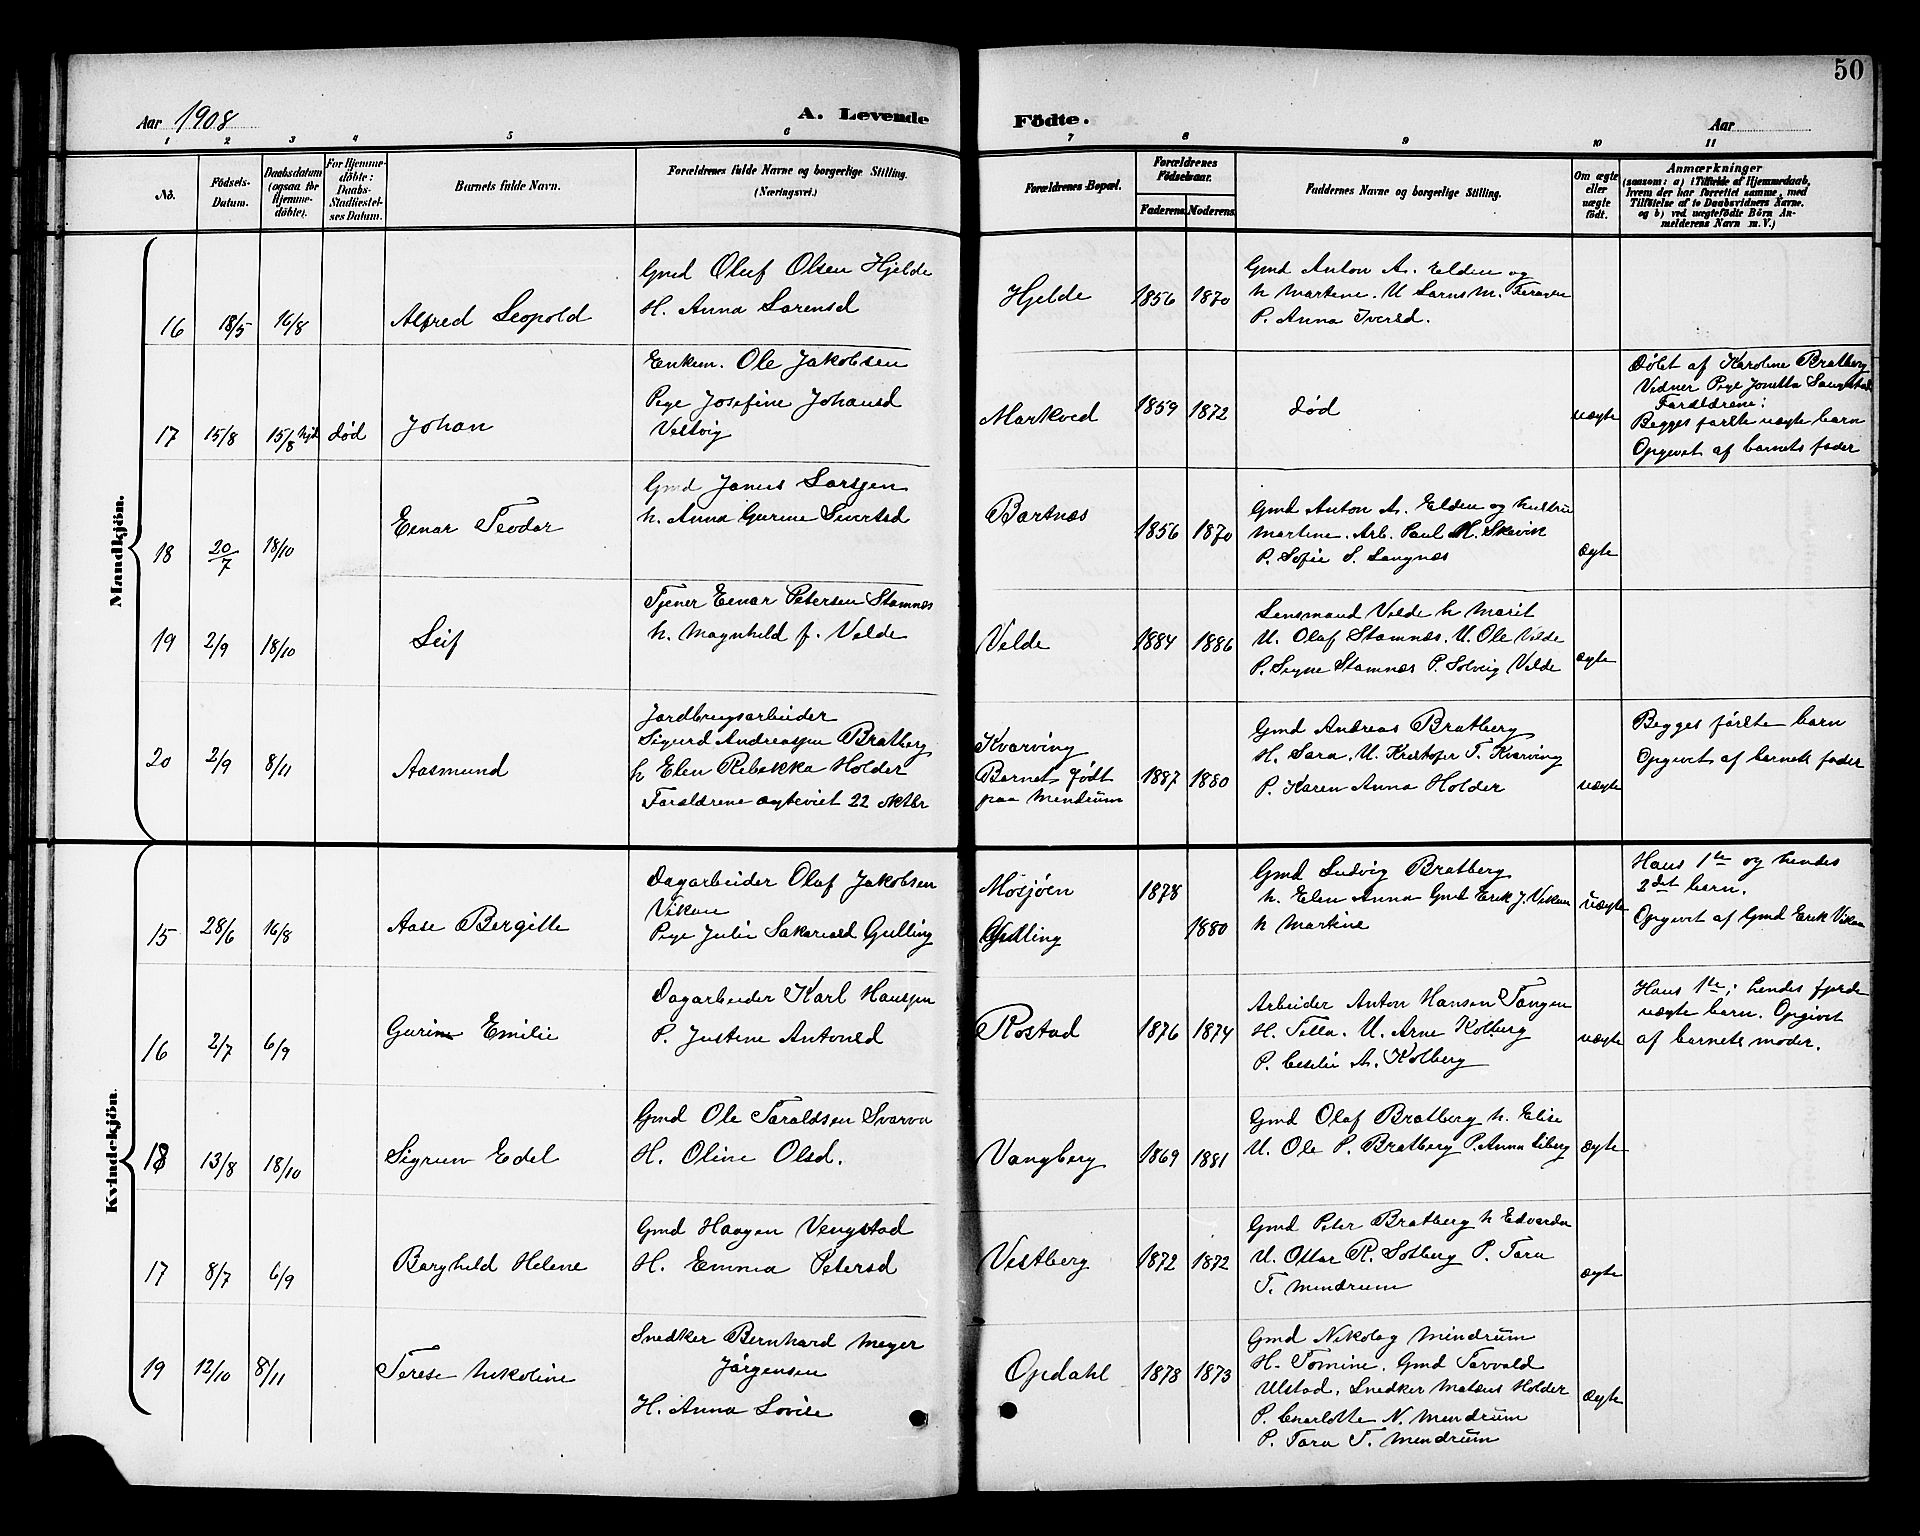 50
Aar 1908
A. Levende
Födte.
Aar
1 2 3 4 5 6 7 8 9 10 11
No.
Födsels-
Datum.
Daabsdatum
(ogsaa for
Hjemme-
döbte).
For Hjemme-
döbte:
Daabs-
Stadfæstel-
ses Datum.
Barnets fulde Navn.
Forældrenes fulde Navne og borgerlige Stilling.
(Næringsvei.)
Forældrenes Bopæl.
Forældrenes
Födselsaar.
Faderens. Moderens.
Faddernes Navne og borgerlige Stilling.
Om ægte
eller
uægte
födt.
Anmærkninger
(saasom: a) i Tilfælde af Hjemmedaab,
hvem der har forrettet samme, med
Tilföielse af to Daabsvidners Navne.
og b) ved uægtefödte Börn An-
melderens Navn m. V.)
Mandkjön.
16 18/5 16/8
Alfred Leopold
Gmd Oluf Olsen Hjelde
H. Anna Lorensd
Hjelde
1856 1870
Gmd Anton A. Elden og
h Martene. U Larns M.
P. Anna Iversd.
17 15/8 15/8 hjd død
Johan
Enkem. Ole Jakobsen
Pige Josefine Johansd
Veltvig
Markved
1859 1872
død
uægte
Døbt af Karoline Bratberg
Vidner Pige Jonetta
Forældrene:
Begges første uægte barn
Opgivet af barnets fader
18 20/7 18/10
Einar Teodor
Gmd Janus Larssen
h. Anna Gurine Sivertsd
Bartnæs
1856 1870
Gmd Anton A. Elden og hustru
Martine. Arb. Paul M. Skevik
P. Sofie S. Langnæs
ægte
19 2/9 18/10
Leif
Tjener Einar Petersen Stamnæs
h. Magnhild f. Velde
Velde
1884 1886
Lensmand Velde h Marit
U. Olaf Stamnæs. U. Ole Velde
P. Signe Stamnæs P. Solveig Velde
ægte
20 2/9 8/11
Aasmund
Jordbrugsarbeider
Sigurd Andreassen Bratberg
h Elen Rebekka Holder
Forældrene ægteviet 22 oktbr
Kvarving
Barnet født
paa Mendrum
1887 1880
Gmd Andreas Bratberg
H. Sara. U. Kristofer T. Kvarving
P. Karen Anna Holder
uægte
Begges første barn
Opgivet af barnets fader
Kvindekjön.
15 28/6 16/8
Aase Bergitte
Dagarbeider Olaf Jakobsen
Vikan
Pige Julie Sakariasd Gulling
Mosjøen
Gulling
1878
1880
Gmd Ludvig Bratberg
h. Elen Anna Gmd Erik J. Vikan
h Martine
uægte
Hans 1te og hendes
2det barn.
Opgivet af Gmd Erik Vikan
16 2/7 6/9
Gurine Emilie
Dagarbeider Karl Hanssen
P. Justine Antonsd
Rostad
1876 1874
Arbeider Anton Hansen Tangen
H. Tella. U. Arne Kolberg
P. Cesilie A. Kolberg
uægte
Hans 1te; hendes fjerde
uægte barn. Opgivet
af barnets moder.
18 13/8 18/10
Sigrun Edel
Gmd Ole Taraldsen Svarva
H. Oline Olsd.
Vangberg
1869 1881
Gmd Olaf Bratberg h. Elise
U. Ole P. Bratberg P. Anna Liberg
ægte
17 8/7 6/9
Berghild Helene
Gmd Haagen Vengstad
H. Emma Petersd
Vestberg
1872 1872
Gmd Peter Bratberg h Edvarda
U. Ottar R. Solberg P. Tora
T. Mendrum
ægte
19 12/10 8/11
Terese Nikoline
Snedker Bernhard Meyer
Jørgensen
H. Anna Lovise
Opdahl
1878 1873
Gmd Nikolag Mindrum
H. Tomine. Gmd Torvald
Ulstad. Snedker Matæus Holder
P. Charlotte N. Mendrum
P. Tora T. Mendrum
ægte